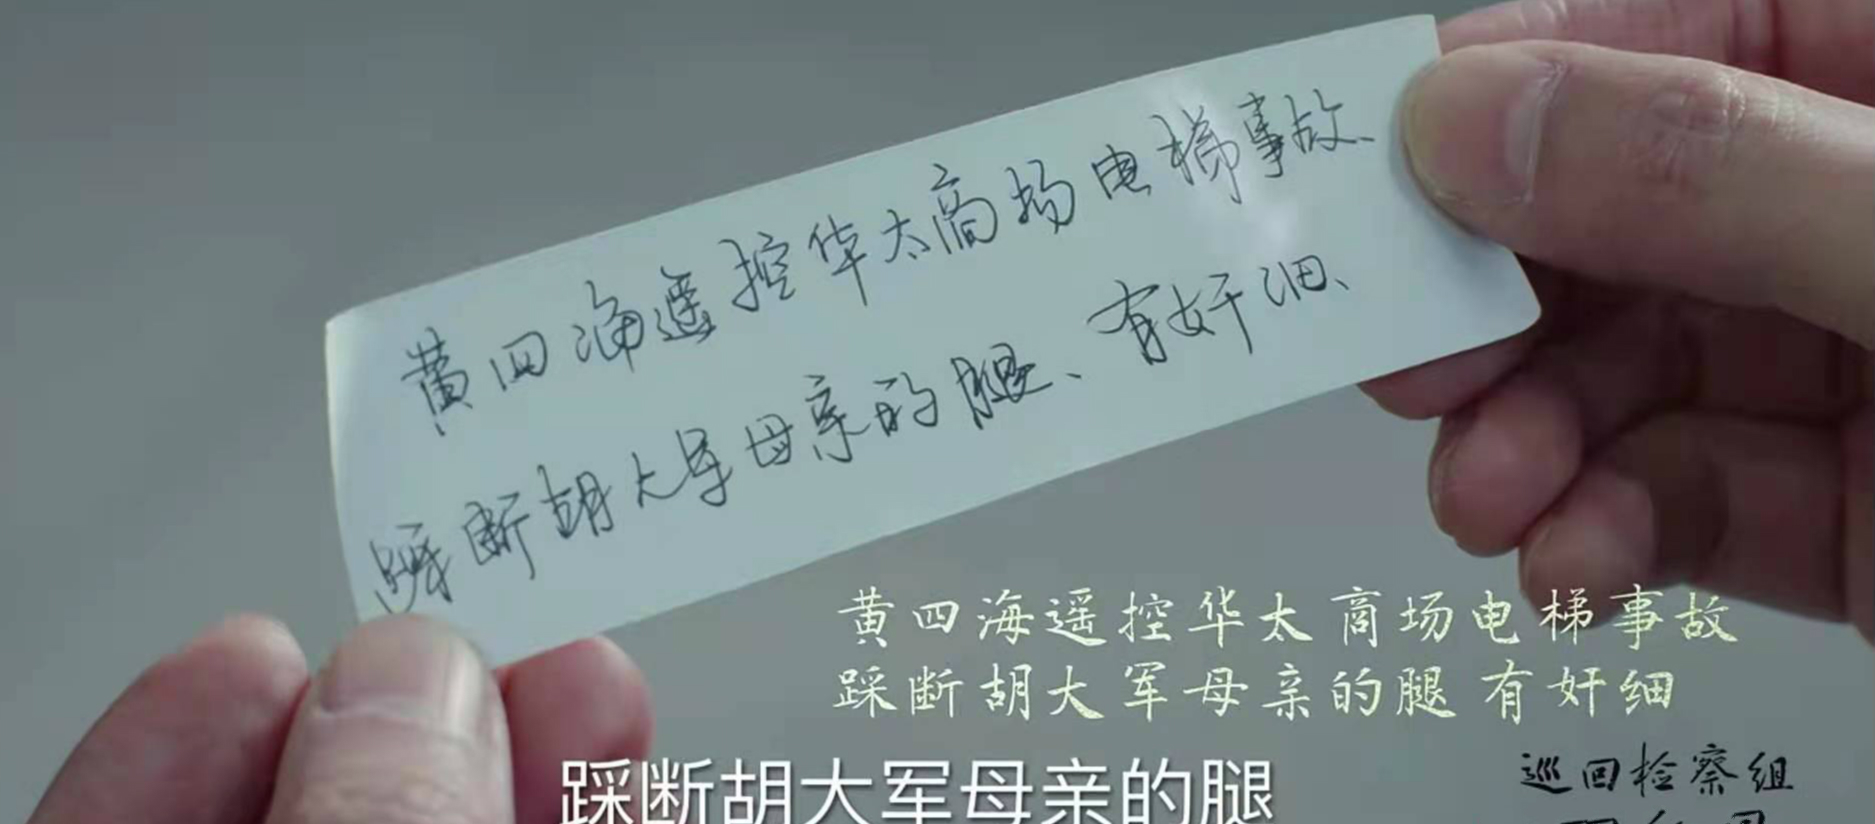 黄四海遥控华太商场电梯事故、
踩断胡大军母亲的腿、有奸细、
黄四海遥控华太商场电梯事故
踩断胡大军母亲的腿 有奸细
踩断胡大军母亲的腿
巡回检察组